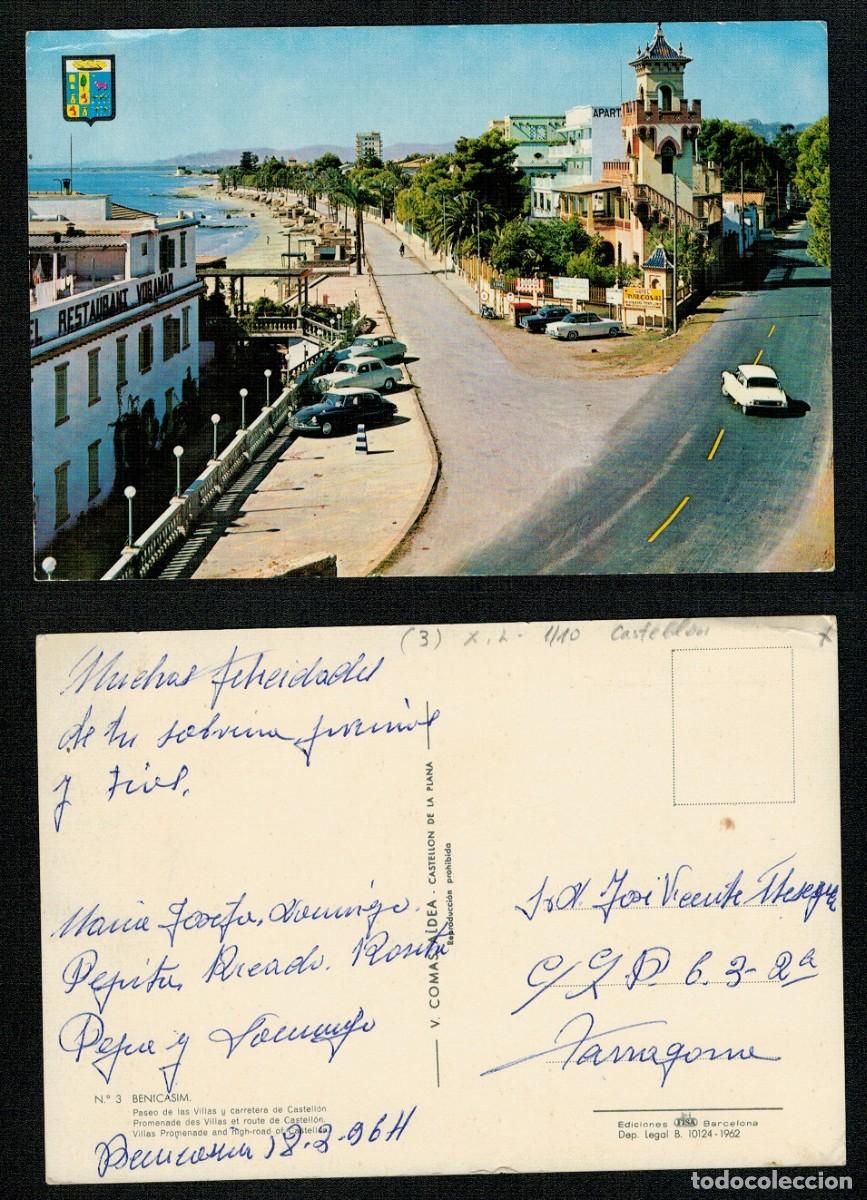 APART
HOTEL
TURCOSA
EL RESTAURANT VORAMAR
(3) X.L- 1/10 Castellón X
Muchas felicidades
de tu sobrina, primos
y tios.
Maria Josefa, Domingo.
Pepita, Ricardo. Rosita
Pepa y Domingo
V. COMAS ALDEA - CASTELLON DE LA PLANA
Reproducción prohibida
Sr. D. José Vicente
C/ 6. 3-2ª
Tarragona
N.º 3 BENICASIM.
Paseo de las Villas y carretera de Castellón
Promenade des Villas et route de Castellón.
Villas Promenade and high-road of Castellón
Benicasim 18-3-964
Ediciones FISA Barcelona
Dep. Legal B. 10124-1962
todocoleccion